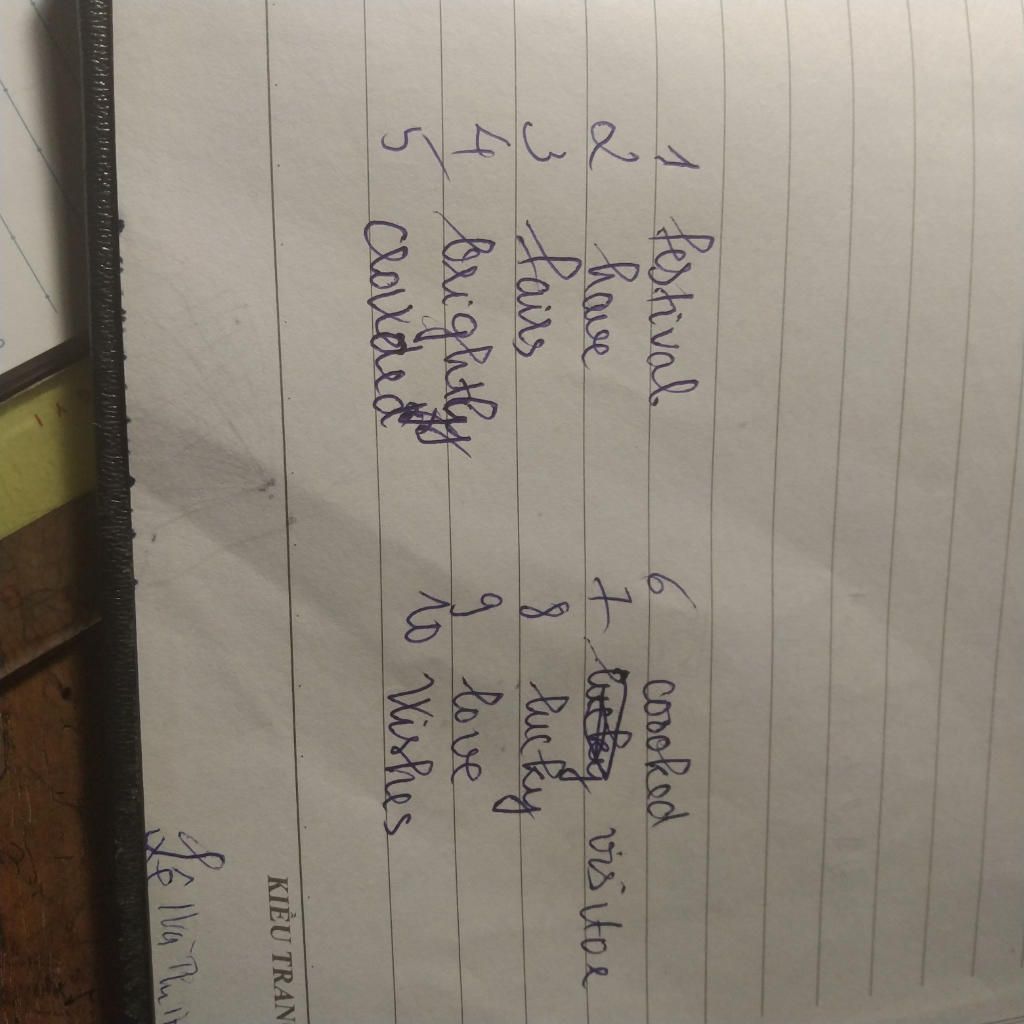 1 festival
2 have
3 fairs
4 brightly
5 crowded
6 coooked
7 visitor
8 lucky
9 love
10 Wishes
KIỀU TRAN